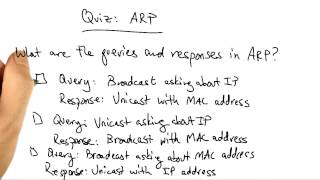 Quiz: ARP
What are the queries and responses in ARP?
Query: Broadcast asking about IP
Response: Unicast with MAC address
Query: Unicast asking about IP
Response: Broadcast with MAC address
Query: Broadcast asking about MAC address
Response: Unicast with IP address